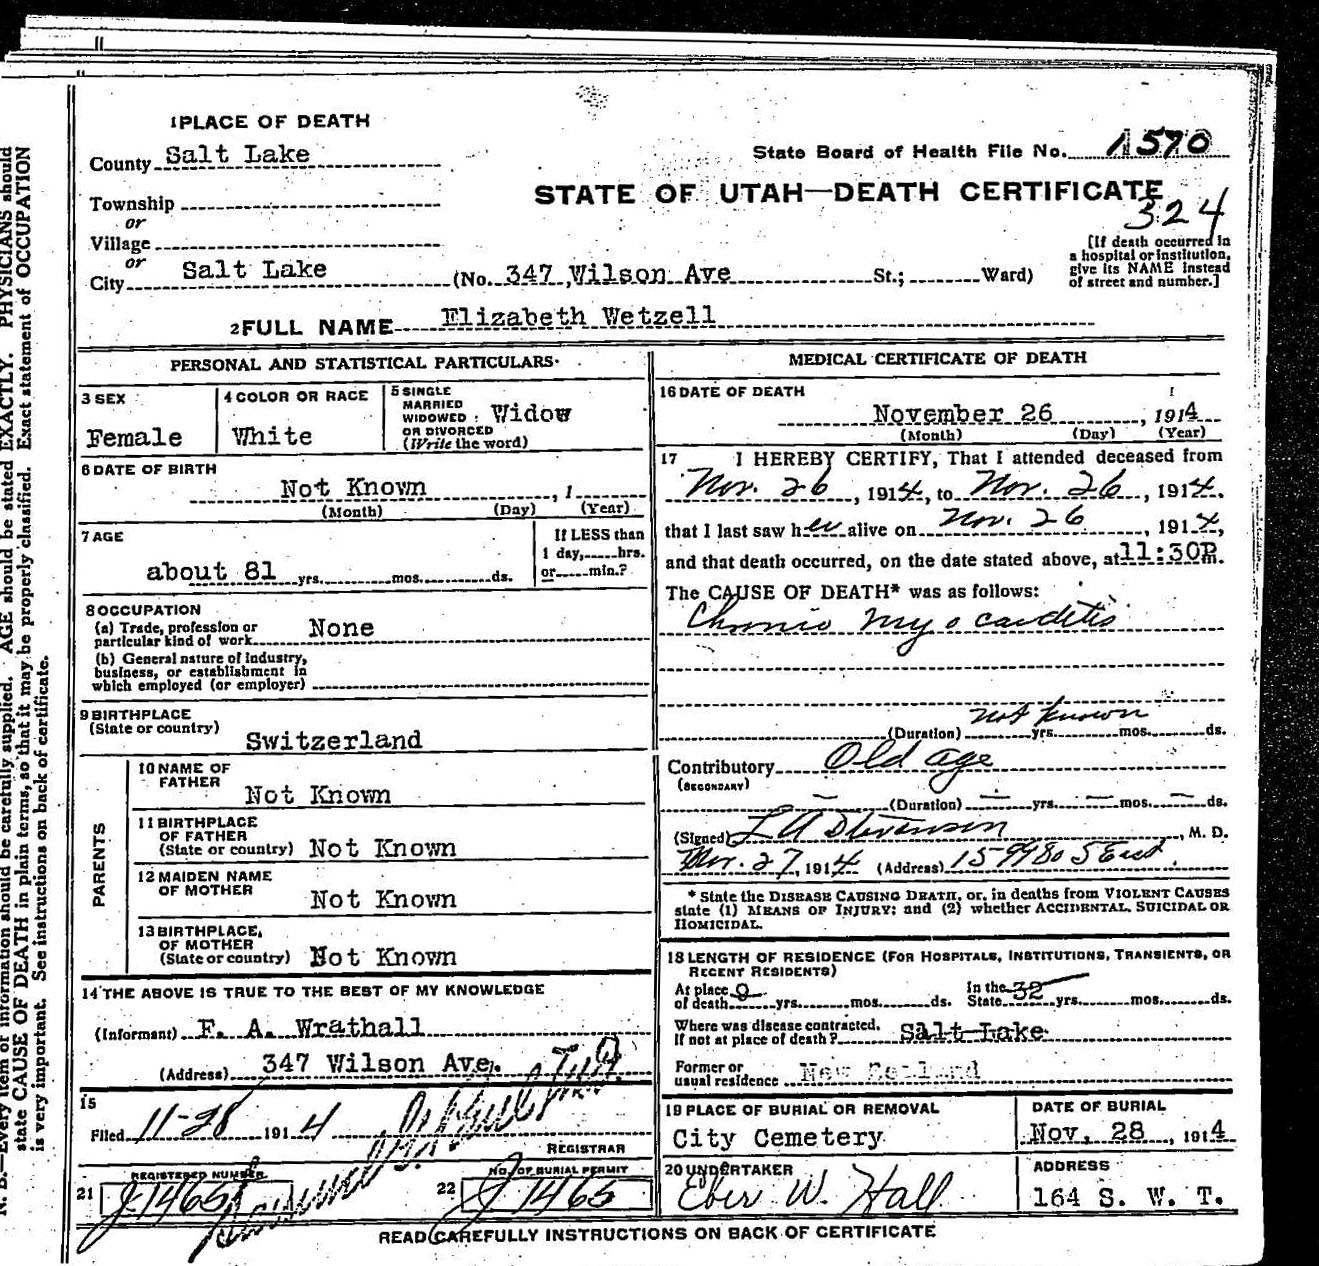 1 PLACE OF DEATH
County Salt Lake
Township
or
Village
or
City Salt Lake (No. 347, Wilson Ave St.; Ward)
State Board of Health File No. 1570
STATE OF UTAH—DEATH CERTIFICATE
324
[If death occurred in
a hospital or institution,
give its NAME instead
of street and number.]
2 FULL NAME Elizabeth Wetzell
PERSONAL AND STATISTICAL PARTICULARS
3 SEX
Female
4 COLOR OR RACE
White
5 SINGLE
MARRIED
WIDOWED
OR DIVORCED
(Write the word)
Widow
6 DATE OF BIRTH
Not Known , 1
(Month) (Day) (Year)
7 AGE
about 81 yrs. mos. ds.
If LESS than
1 day, hrs.
or min.?
8 OCCUPATION
(a) Trade, profession or
particular kind of work None
(b) General nature of industry,
business, or establishment in
which employed (or employer)
9 BIRTHPLACE
(State or country)
Switzerland
PARENTS
10 NAME OF
FATHER
Not Known
11 BIRTHPLACE
OF FATHER
(State or country) Not Known
12 MAIDEN NAME
OF MOTHER
Not Known
13 BIRTHPLACE,
OF MOTHER
(State or country) Not Known
14 THE ABOVE IS TRUE TO THE BEST OF MY KNOWLEDGE
(Informant) F. A. Wrathall
(Address) 347 Wilson Ave.
15
Filed 11-28 1914
REGISTRAR
REGISTERED NUMBER
21 J 1465
NO. OF BURIAL PERMIT
22 J 1465
MEDICAL CERTIFICATE OF DEATH
16 DATE OF DEATH
November 26 , 1914
(Month) (Day) (Year)
17 I HEREBY CERTIFY, That I attended deceased from
Nov. 26, 1914, to Nov. 26, 1914.
that I last saw her alive on Nov. 26, 1914,
and that death occurred, on the date stated above, at 11:30P m.
The CAUSE OF DEATH* was as follows:
Chronic Myocarditis
not known
(Duration) yrs. mos. ds.
Contributory Old age
(SECONDARY)
(Duration) — yrs. — mos. — ds.
(Signed) L A Stevenson, M. D.
Nov. 27, 1914 (Address)
* State the DISEASE CAUSING DEATH, or, in deaths from VIOLENT CAUSES
state (1) MEANS OF INJURY; and (2) whether ACCIDENTAL, SUICIDAL OR
HOMICIDAL.
18 LENGTH OF RESIDENCE (FOR HOSPITALS, INSTITUTIONS, TRANSIENTS, OR
RECENT RESIDENTS)
At place
of death 9 yrs. mos. ds.
In the
State 32 yrs. mos. ds.
Where was disease contracted,
if not at place of death? Salt Lake
Former or
usual residence New Zealand
19 PLACE OF BURIAL OR REMOVAL
City Cemetery
DATE OF BURIAL
Nov. 28, 1914
20 UNDERTAKER
Eber W. Hall
ADDRESS
164 S. W. T.
READ CAREFULLY INSTRUCTIONS ON BACK OF CERTIFICATE
N. B.—Every item of information should be carefully supplied. AGE should be stated EXACTLY. PHYSICIANS should
state CAUSE OF DEATH in plain terms, so that it may be properly classified. Exact statement of OCCUPATION
is very important. See instructions on back of certificate.